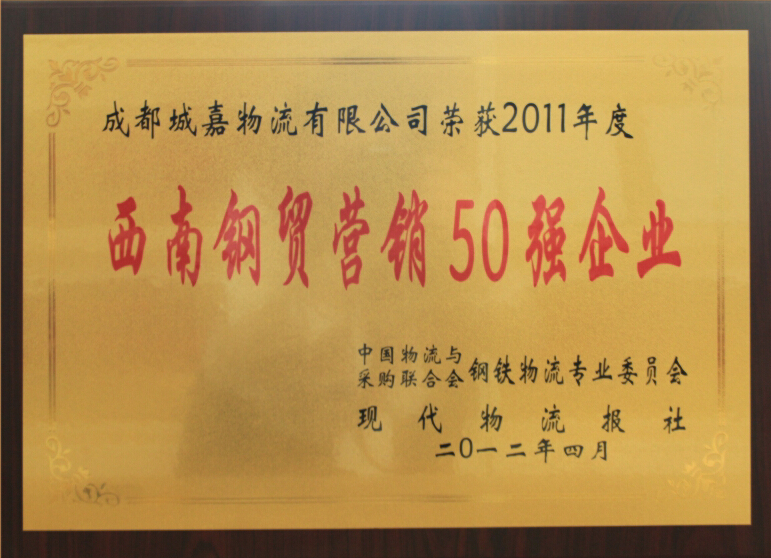 成都城嘉物流有限公司荣获2011年度
西南钢贸营销50强企业
中国物流与
采购联合会钢铁物流专业委员会
现代物流报社
二0一二年四月